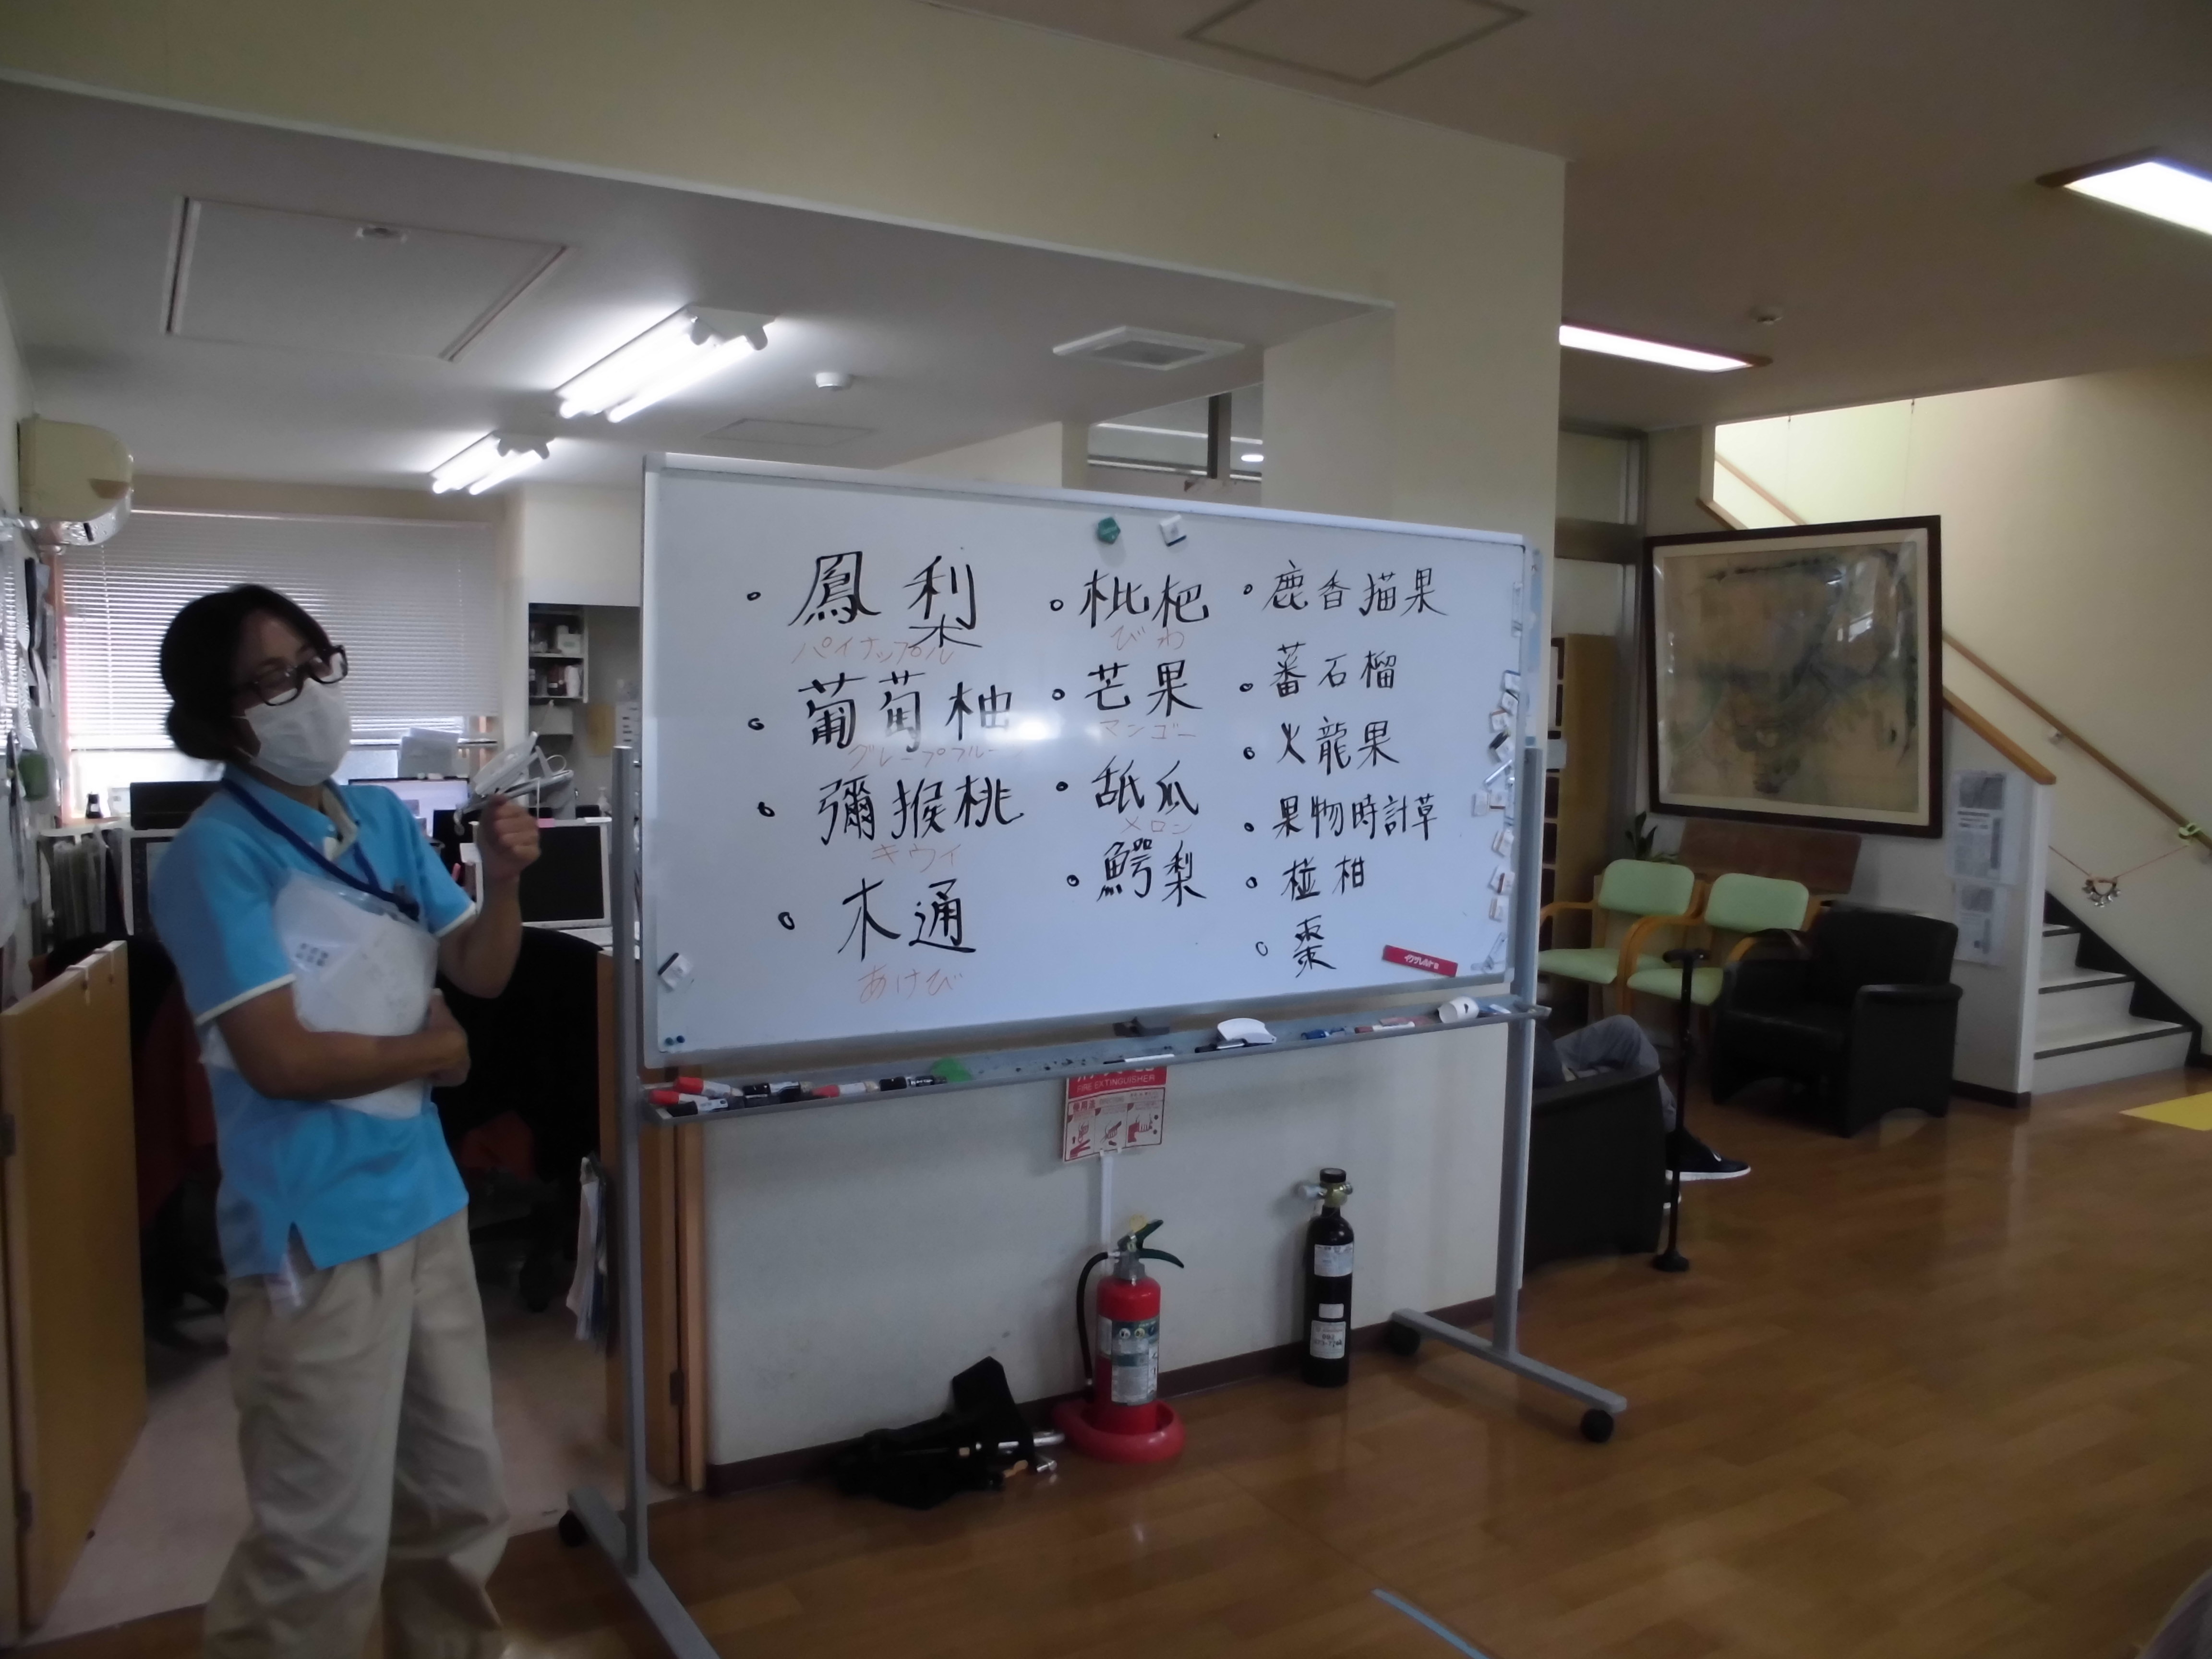 鳳梨
パイナップル
葡萄柚
グレープフルー
彌猴桃
キウイ
木通
あけび
枇杷
びわ
芒果
マンゴー
舐瓜
メロン
鰐梨
鹿香猫果
蕃石榴
火龍果
果物時計草
椪柑
棗
FIRE EXTINGUISHER